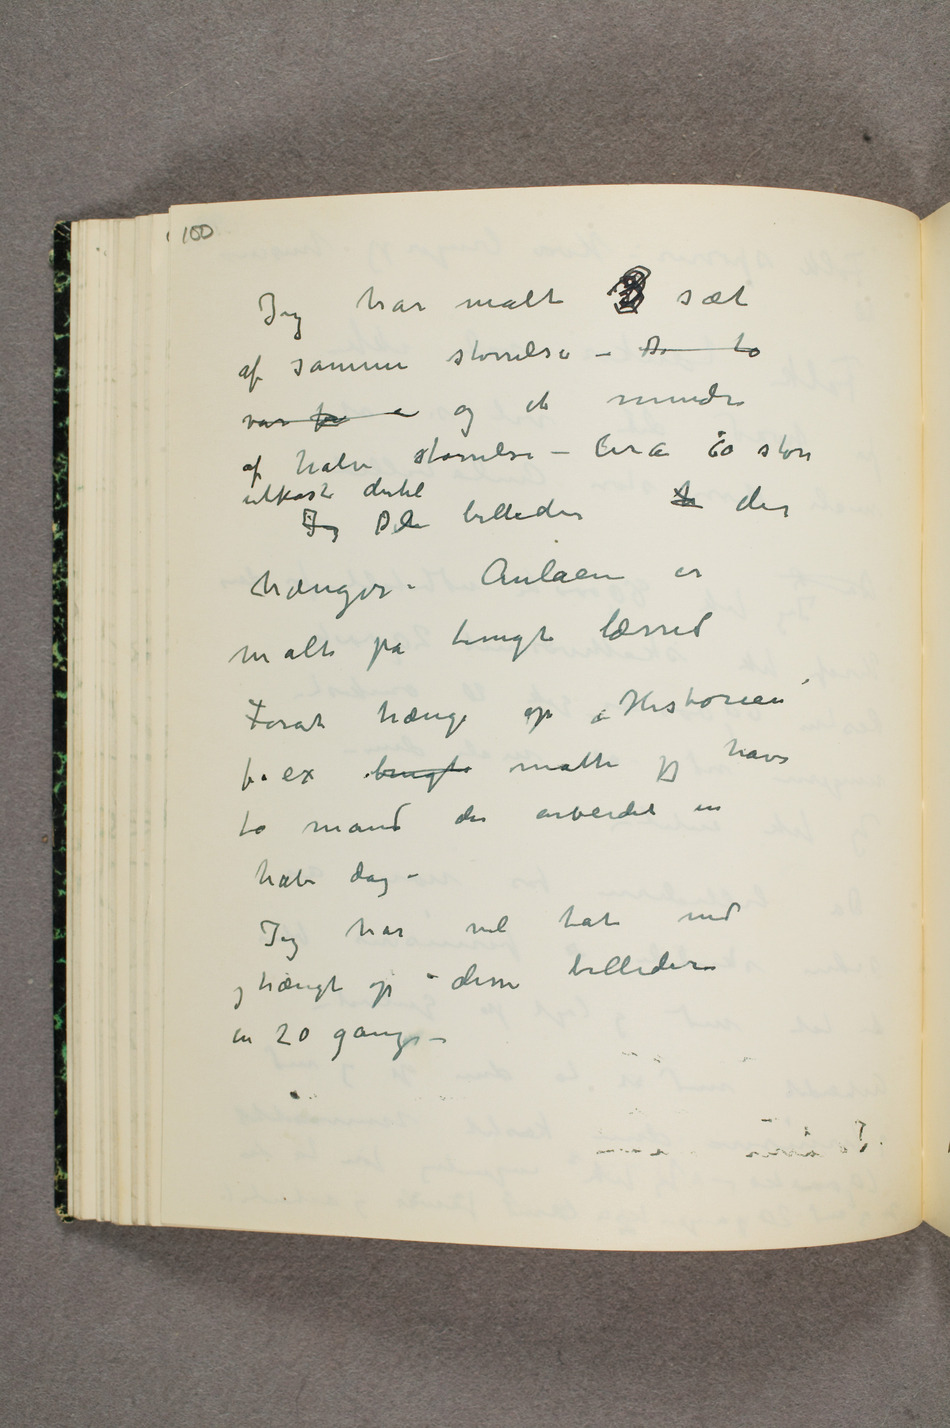 100
Jeg har malt 3 sæt
af samme størrelse – De to
var for og et mindre
af halv størrelse – Circa 60 store
utkast dertil
Jeg De billeder der
hænger i Aulaen er
malt på tungt lærred
Forat hænge op „Historien"
f. ex tungt måtte jeg have
to mand der arbeidet en
halv dag –
Jeg har vel tat ned
og hængt op disse billeder
en 20 gange –